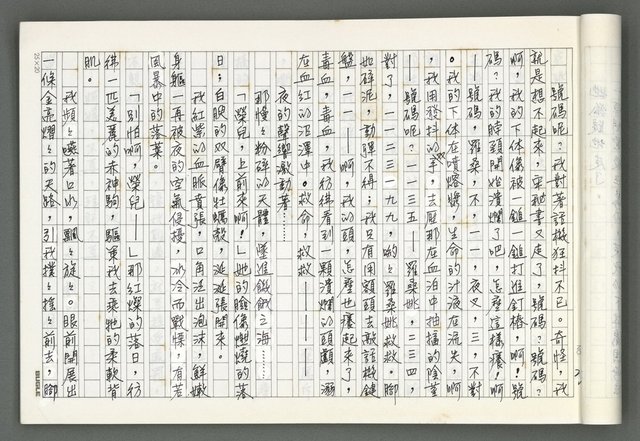 號碼呢?我對著話機狂抖不已。奇怪,我
就是想不起來,電話拿又走了,號碼?號碼?
啊,我的下体像被一鎚一鎚打進釘樁,啊!號
碼?我的脖頸開始潰爛了吧,怎麼這樣癢!啊
——號碼,羅桑,不,一一,夜叉,三,不對
。我的下体在噴熔漿,生命的汁液在流失,啊
,我用發抖的手,去壓那在血泊中抽搐的陰莖
——號碼呢?一一三五——羅桑姚——一二三四,
對了,一一二三一九九,喲々羅桑姚救救。腳
如碎泥,動彈不得;我只有用額頭去敲話機鍵
盤,一一——啊,我的頭,怎麼也癢起來了,
毒血,毒血,我彷彿看到一顆潰爛的頭顱,溺
在血紅的沼澤中。救命,救救————
夜的聲響激動著……
那慢々粉碎的天體,墜進饑餓之海……
「榮兒,上前來啊!」她的臉像燃燒的落
日;白腴的双臂像牡蠣殼,迯迯張開來。
我紅瑩的血脈賁張,口角沁出泡沫,鮮嫩
身軀一再被夜的空氣侵擾,冰冷而戰慄,有若
風暴中的落葉。
「別怕啊,榮兒——」那紅燦的落日,彷
彿一匹美麗的赤神駒,驅策我去乘牠的柔軟背
肌。
我頻々嚥著口水,飄々旋々。眼前開展出
一條金亮燿々的天路,引我撲々搖々前去,腳
25×20